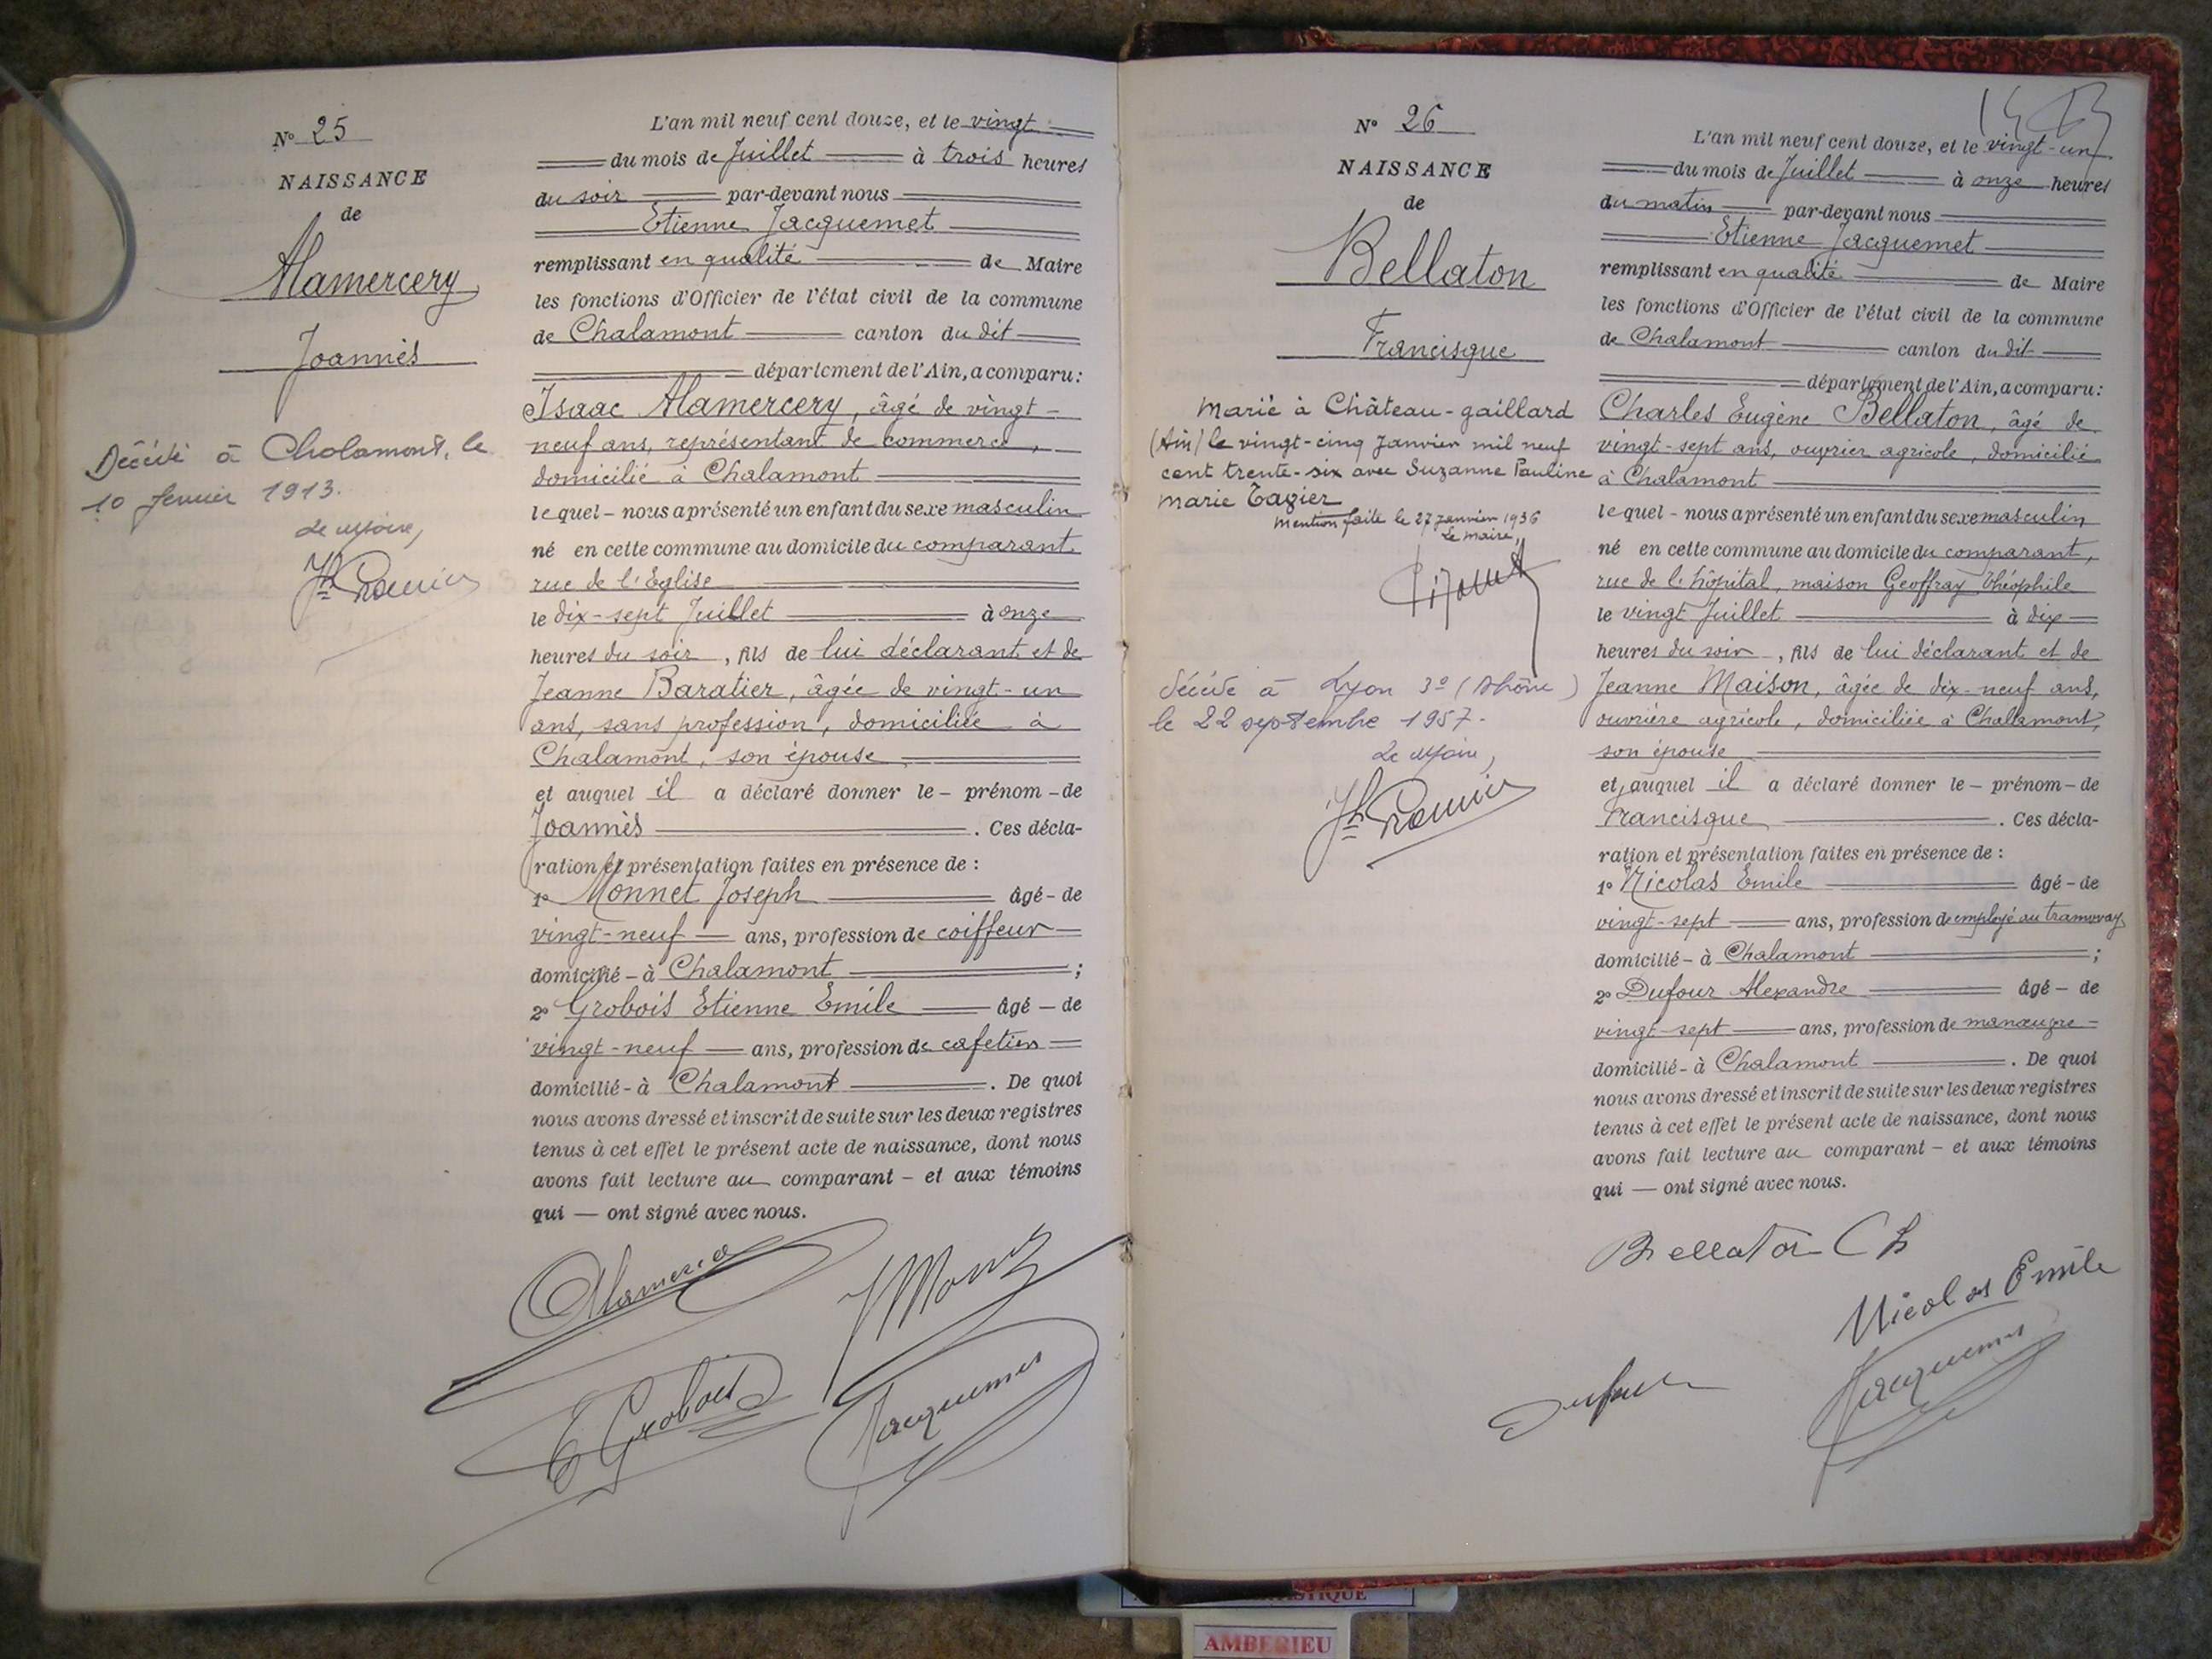 N° 25
NAISSANCE
de
Alamercery
Joannès
Décédé à Chalamont, le
10 février 1913.
Le Maire,
L'an mil neuf cent douze, et le vingt
du mois de Juillet à trois heures
du soir par-devant nous
Etienne Jacquemet
remplissant en qualité de Maire
les fonctions d'Officier de l'état civil de la commune
de Chalamont canton du dit
département de l'Ain, a comparu:
Isaac Alamercery, âgé de vingt-
neuf ans, représentant de commerce,
domicilié à Chalamont
lequel - nous a présenté un enfant du sexe masculin
né en cette commune au domicile du comparant,
rue de l'Eglise
le dix-sept Juillet à onze
heures du soir, fils de lui déclarant et de
Jeanne Baratier, âgée de vingt-un
ans, sans profession, domiciliée à
Chalamont, son épouse
et auquel il a déclaré donner le - prénom - de
Joannès . Ces décla-
ration et présentation faites en présence de :
1° Monnet Joseph âgé - de
vingt-neuf ans, profession de coiffeur
domicilié - à Chalamont ;
2° Grobois Etienne Emile âgé - de
vingt-neuf ans, profession de cafetier
domicilié - à Chalamont . De quoi
nous avons dressé et inscrit de suite sur les deux registres
tenus à cet effet le présent acte de naissance, dont nous
avons fait lecture au comparant - et aux témoins
qui — ont signé avec nous.
E Grobois
Jacquemet
N° 26
NAISSANCE
de
Bellaton
Francisque
Marié à Château-gaillard
(Ain) le vingt-cinq Janvier mil neuf
cent trente-six avec Suzanne Pauline
Marie Tagier
Mention faite le 27 janvier 1936
Le Maire,
Décédé à Lyon 3e (Rhône)
le 22 septembre 1957.
Le Maire,
L'an mil neuf cent douze, et le vingt-un
du mois de Juillet à onze heures
du matin par-devant nous
Etienne Jacquemet
remplissant en qualité de Maire
les fonctions d'Officier de l'état civil de la commune
de Chalamont canton du dit
département de l'Ain, a comparu:
Charles Eugène Bellaton, âgé de
vingt-sept ans, ouvrier agricole, domicilié
à Chalamont
lequel - nous a présenté un enfant du sexe masculin
né en cette commune au domicile du comparant,
rue de l'hôpital, maison Geoffray Théophile
le vingt Juillet à dix
heures du soir, fils de lui déclarant et de
Jeanne Maison, âgée de dix-neuf ans,
ouvrière agricole, domiciliée à Challamont,
son épouse
et auquel il a déclaré donner le - prénom - de
Francisque . Ces décla-
ration et présentation faites en présence de :
1° Nicolas Emile âgé - de
vingt-sept ans, profession de employé au tramway
domicilié - à Chalamont ;
2° Dufour Alexandre âgé - de
vingt-sept ans, profession de manœuvre
domicilié - à Chalamont . De quoi
nous avons dressé et inscrit de suite sur les deux registres
tenus à cet effet le présent acte de naissance, dont nous
avons fait lecture au comparant - et aux témoins
qui — ont signé avec nous.
Bellaton Ch
Nicolas Emile
Dufour
Jacquemet
AMBERIEU